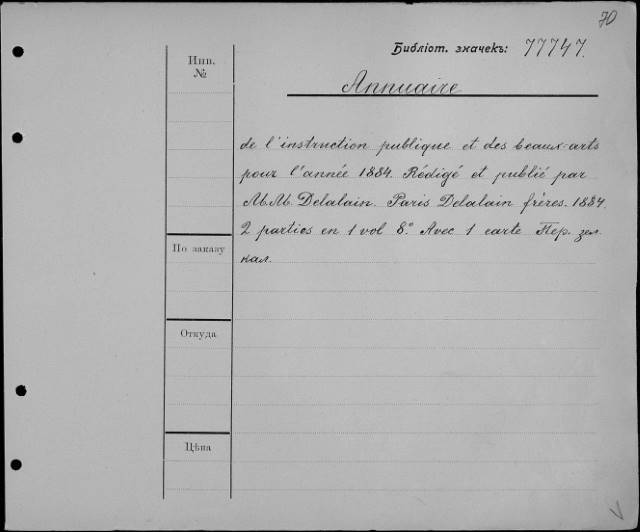 70
Библіот. значекъ: 77747.
Инв.
№
Annuaire
de l'instruction publique et des beaux-arts
pour l'année 1884. Rédigé et publié par
M.M. Delalain. Paris Delalain frères. 1884.
2 parties en 1 vol 8.° Avec 1 carte Пер. зел.
кал.
По заказу
Откуда
Цѣна